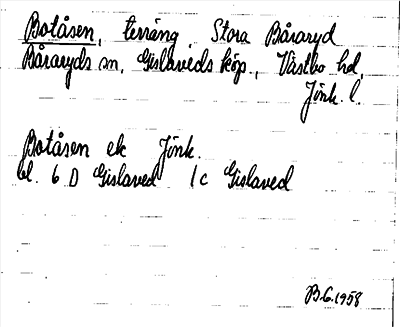 Botåsen, terräng Stora Båraryd
Båraryds sn, Gislaveds köp., Västbo hd,
Jönk. l.
Botåsen ek Jönk.
bl. 6 D Gislaved 1c Gislaved
B.G. 1958